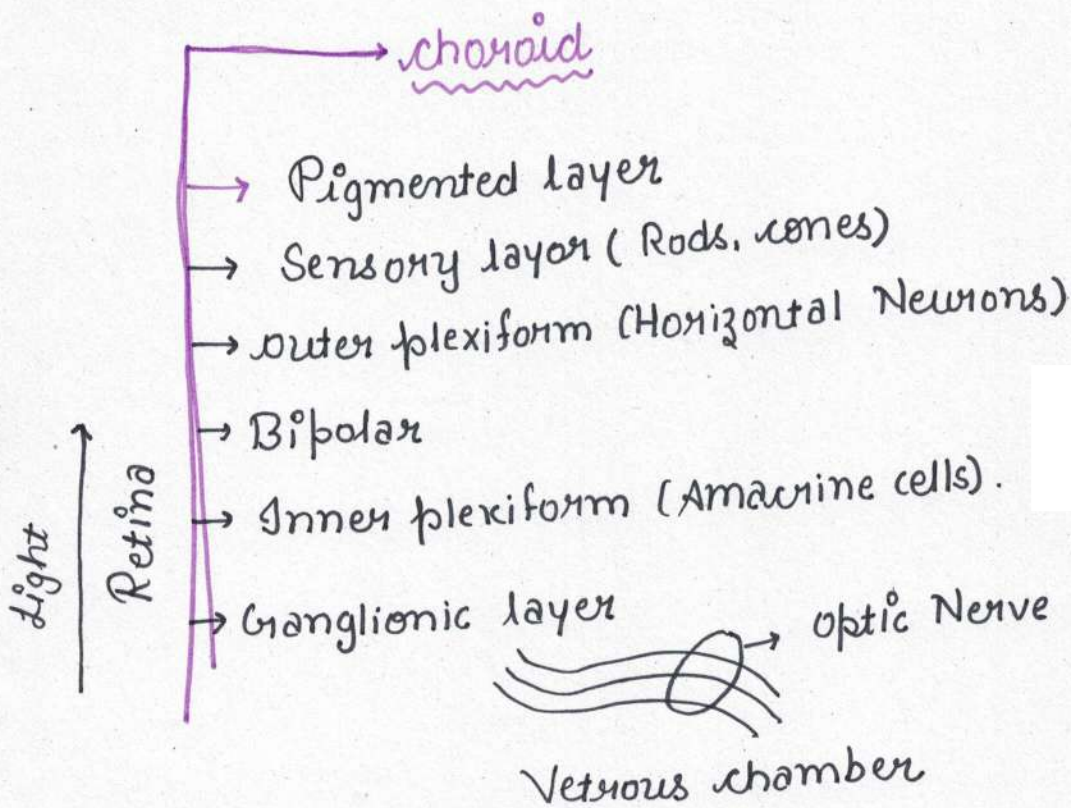 choroid
Pigmented layer
Sensory layor ( Rods, cones)
outer plexiform (Horizontal Neurons)
Bipolar
Inner plexiform (Amacrine cells).
Ganglionic layer
optic Nerve
Vetrous chamber
Light
Retina